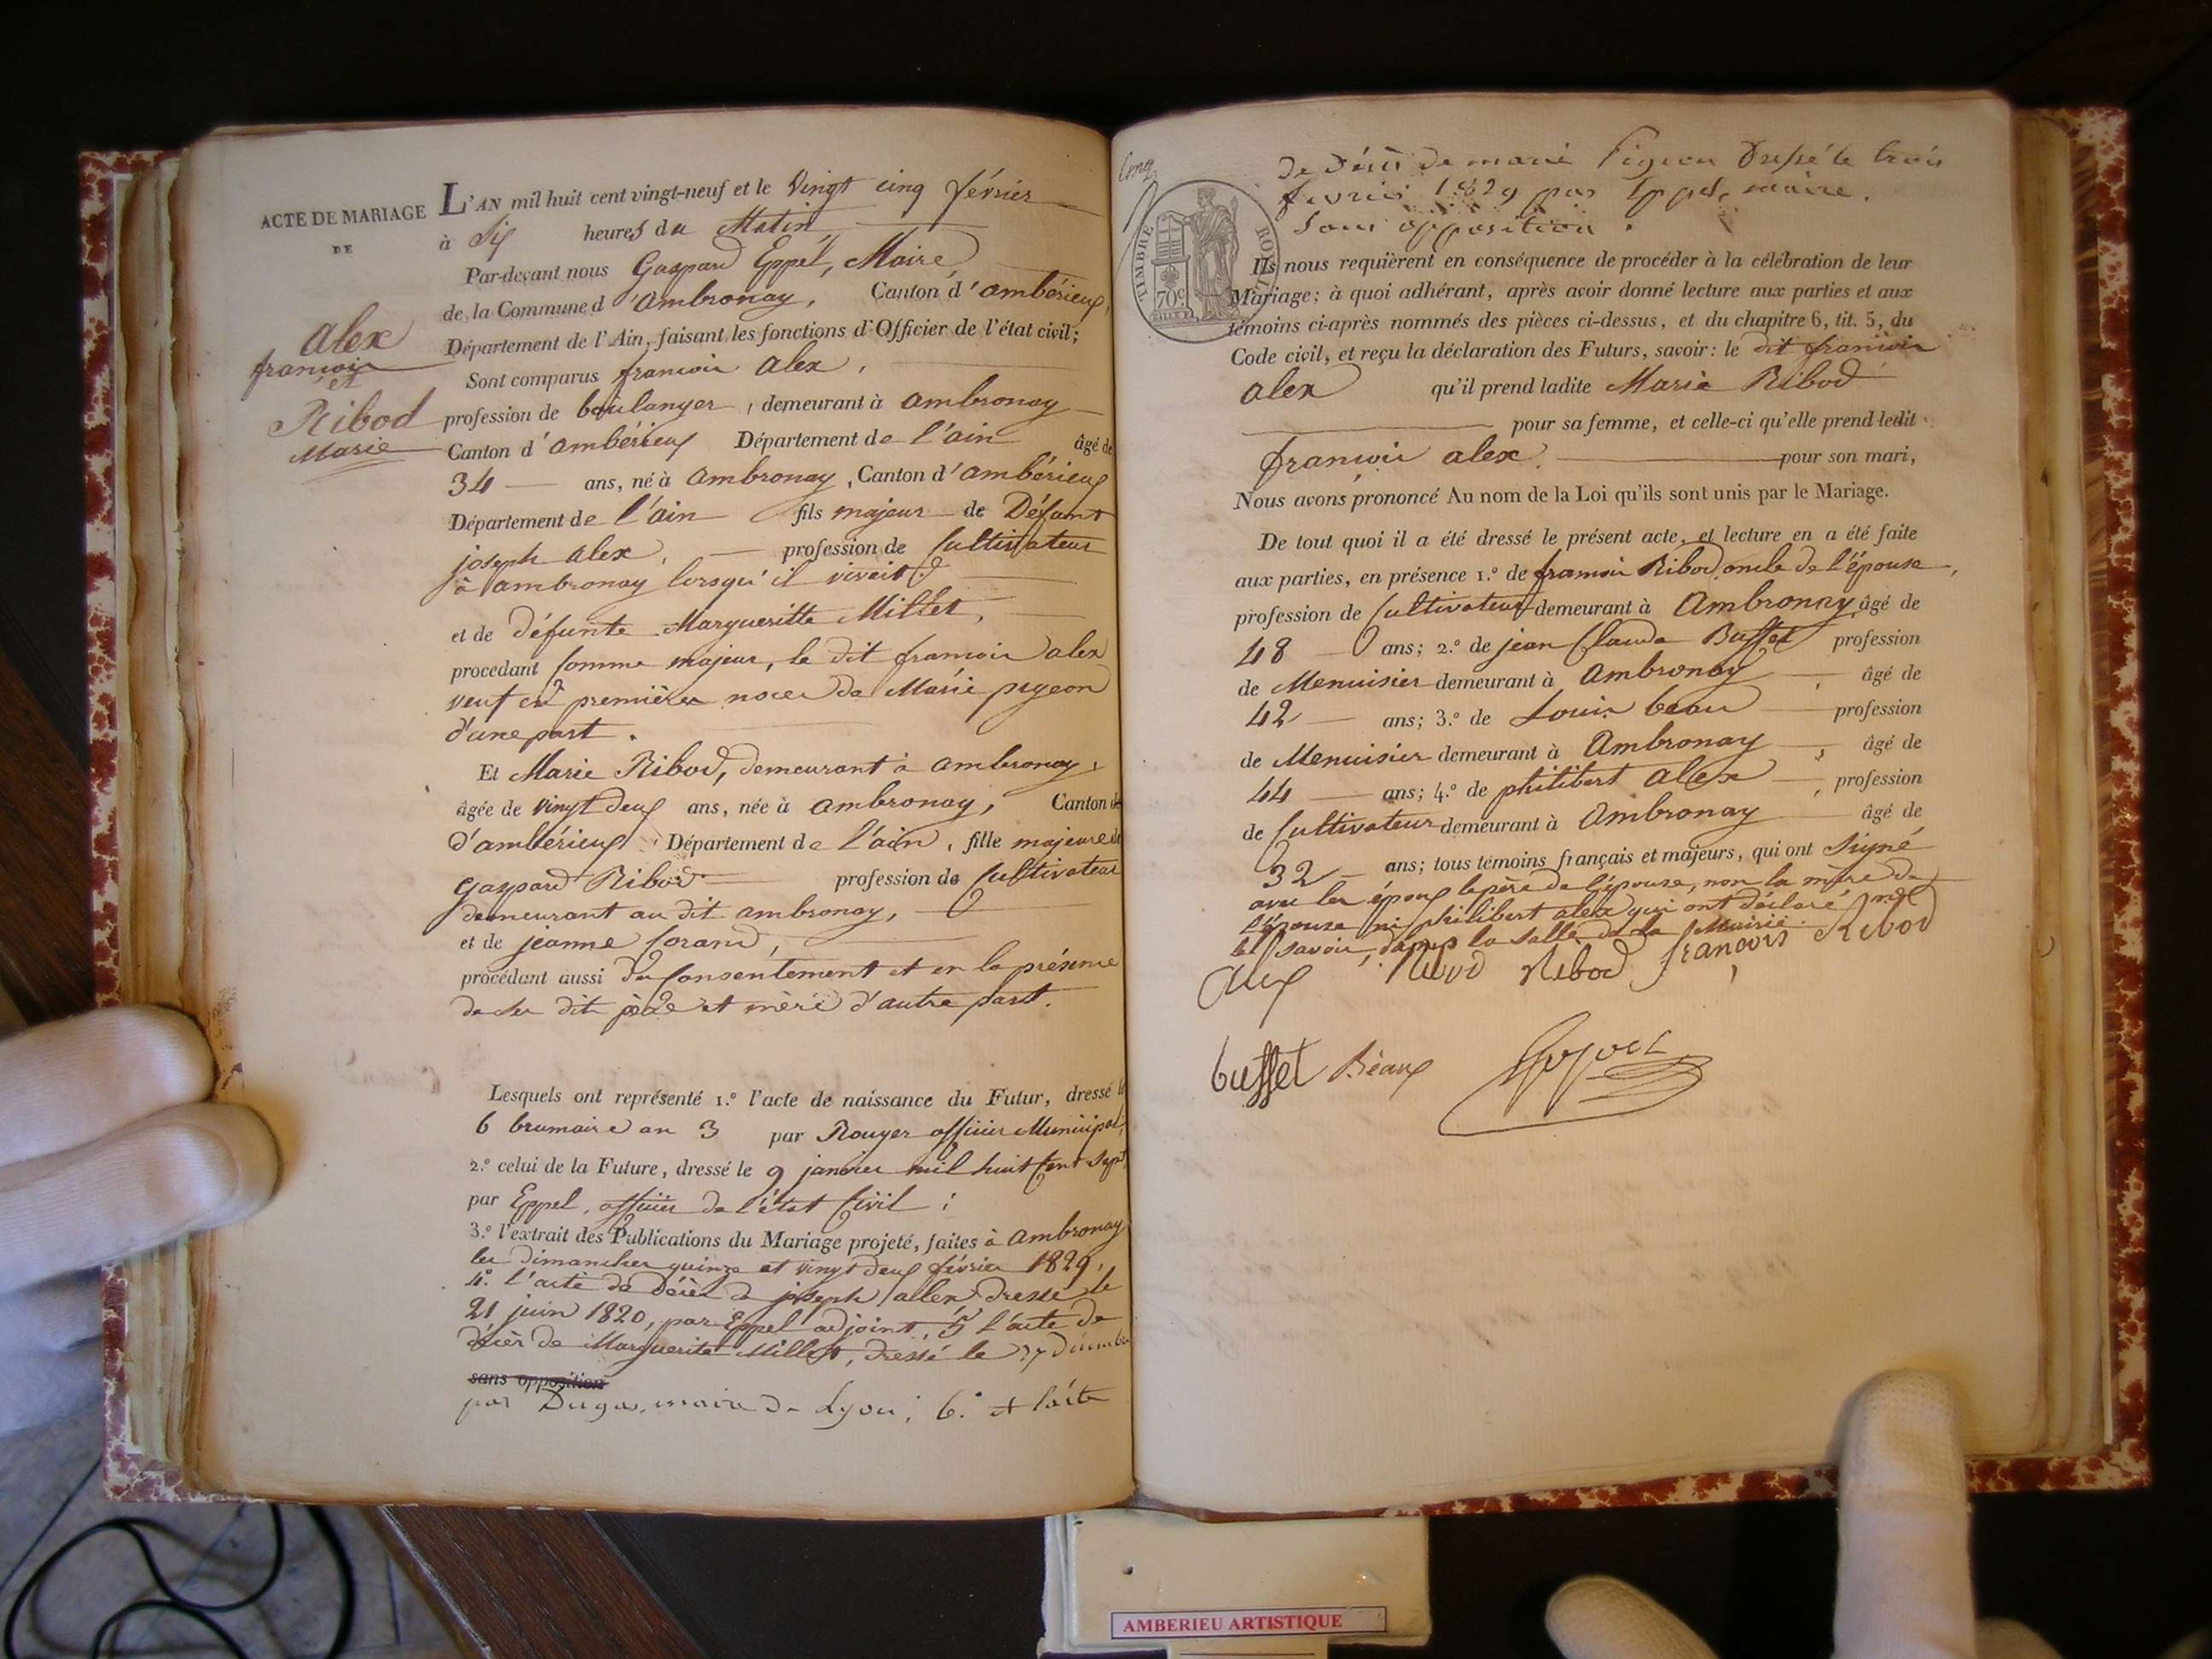 ACTE DE MARIAGE
DE
alex
francois
et
Ribod
Marie
L'AN mil huit cent vingt-neuf et le Vingt cinq février
à Six heures du Matin
Par-devant nous Gaspard Eppel, Maire
de la Commune d'ambronay, Canton d'ambérieux,
Département de l'Ain, faisant les fonctions d'Officier de l'état civil;
Sont comparus francois alex,
profession de boulanger, demeurant à ambronay
Canton d'ambérieux Département de l'ain âgé de
34 ans, né à ambronay, Canton d'ambérieux
Département de l'ain fils majeur de Défunt
joseph alex, profession de Cultivateur
à ambronay lorsqu'il vivait
et de défunte Margueritte Millet,
procedant Comme majeur, le dit francois alex
veuf en premières noces de Marie pigeon
d'une part.
Et Marie Ribod, demeurant à ambronay,
âgée de vingt deux ans, née à ambronay, Canton de
d'ambérieux Département de l'ain, fille majeure de
gaspard Ribod profession de Cultivateur
demeurant au dit ambronay,
et de jeanne Corand,
procédant aussi du Consentement et en la présence
de ses dits père et mère d'autre part.
Lesquels ont représenté 1.º l'acte de naissance du Futur, dressé le
6 brumaire an 3 par Rouyer officier Municipal,
2.º celui de la Future, dressé le 9 janvier mil huit Cent Sept
par Eppel, officier de l'état Civil;
3.º l'extrait des Publications du Mariage projeté, faites à ambronay
les dimanches quinze et vingt deux février 1829.
4.º l'acte de décès de joseph alex dressé le
21 juin 1820, par Eppel adjoint, 5º l'acte de
décès de Marguerite Millet, dressé le 27 décembre
sans opposition
par Dugas, maire de Lyon; 6.º et l'acte
TIMBRE ROYAL
70c
de décès de marie Pigeon dressé le trois
fevrier 1829 par Eppel, maire.
Sans opposition.
Ils nous requièrent en conséquence de procéder à la célébration de leur
Mariage; à quoi adhérant, après avoir donné lecture aux parties et aux
témoins ci-après nommés des pièces ci-dessus, et du chapitre 6, tit. 5, du
Code civil, et reçu la déclaration des Futurs, savoir: le dit francois
alex qu'il prend ladite Marie Ribod
pour sa femme, et celle-ci qu'elle prend ledit
francois alex. pour son mari,
Nous avons prononcé Au nom de la Loi qu'ils sont unis par le Mariage.
De tout quoi il a été dressé le présent acte, et lecture en a été faite
aux parties, en présence 1.º de francois Ribod oncle de l'épouse,
profession de Cultivateur demeurant à Ambronay, âgé de
48 ans; 2.º de jean Claude Buffet profession
de Menuisier demeurant à Ambronay, âgé de
42 ans; 3.º de Louis beau profession
de Menuisier demeurant à Ambronay, âgé de
44 ans; 4.º de philibert alex, profession
de Cultivateur demeurant à Ambronay âgé de
32 ans; tous témoins français et majeurs, qui ont Signé
avec les époux le père de l'épouse, non la mère de
l'épouse ni philibert alex qui ont déclaré ne
le Savoir, dans la Salle de la Mairie.
Alex Ribod Ribod francois Ribod
buffet Béaux Eppel
AMBERIEU ARTISTIQUE